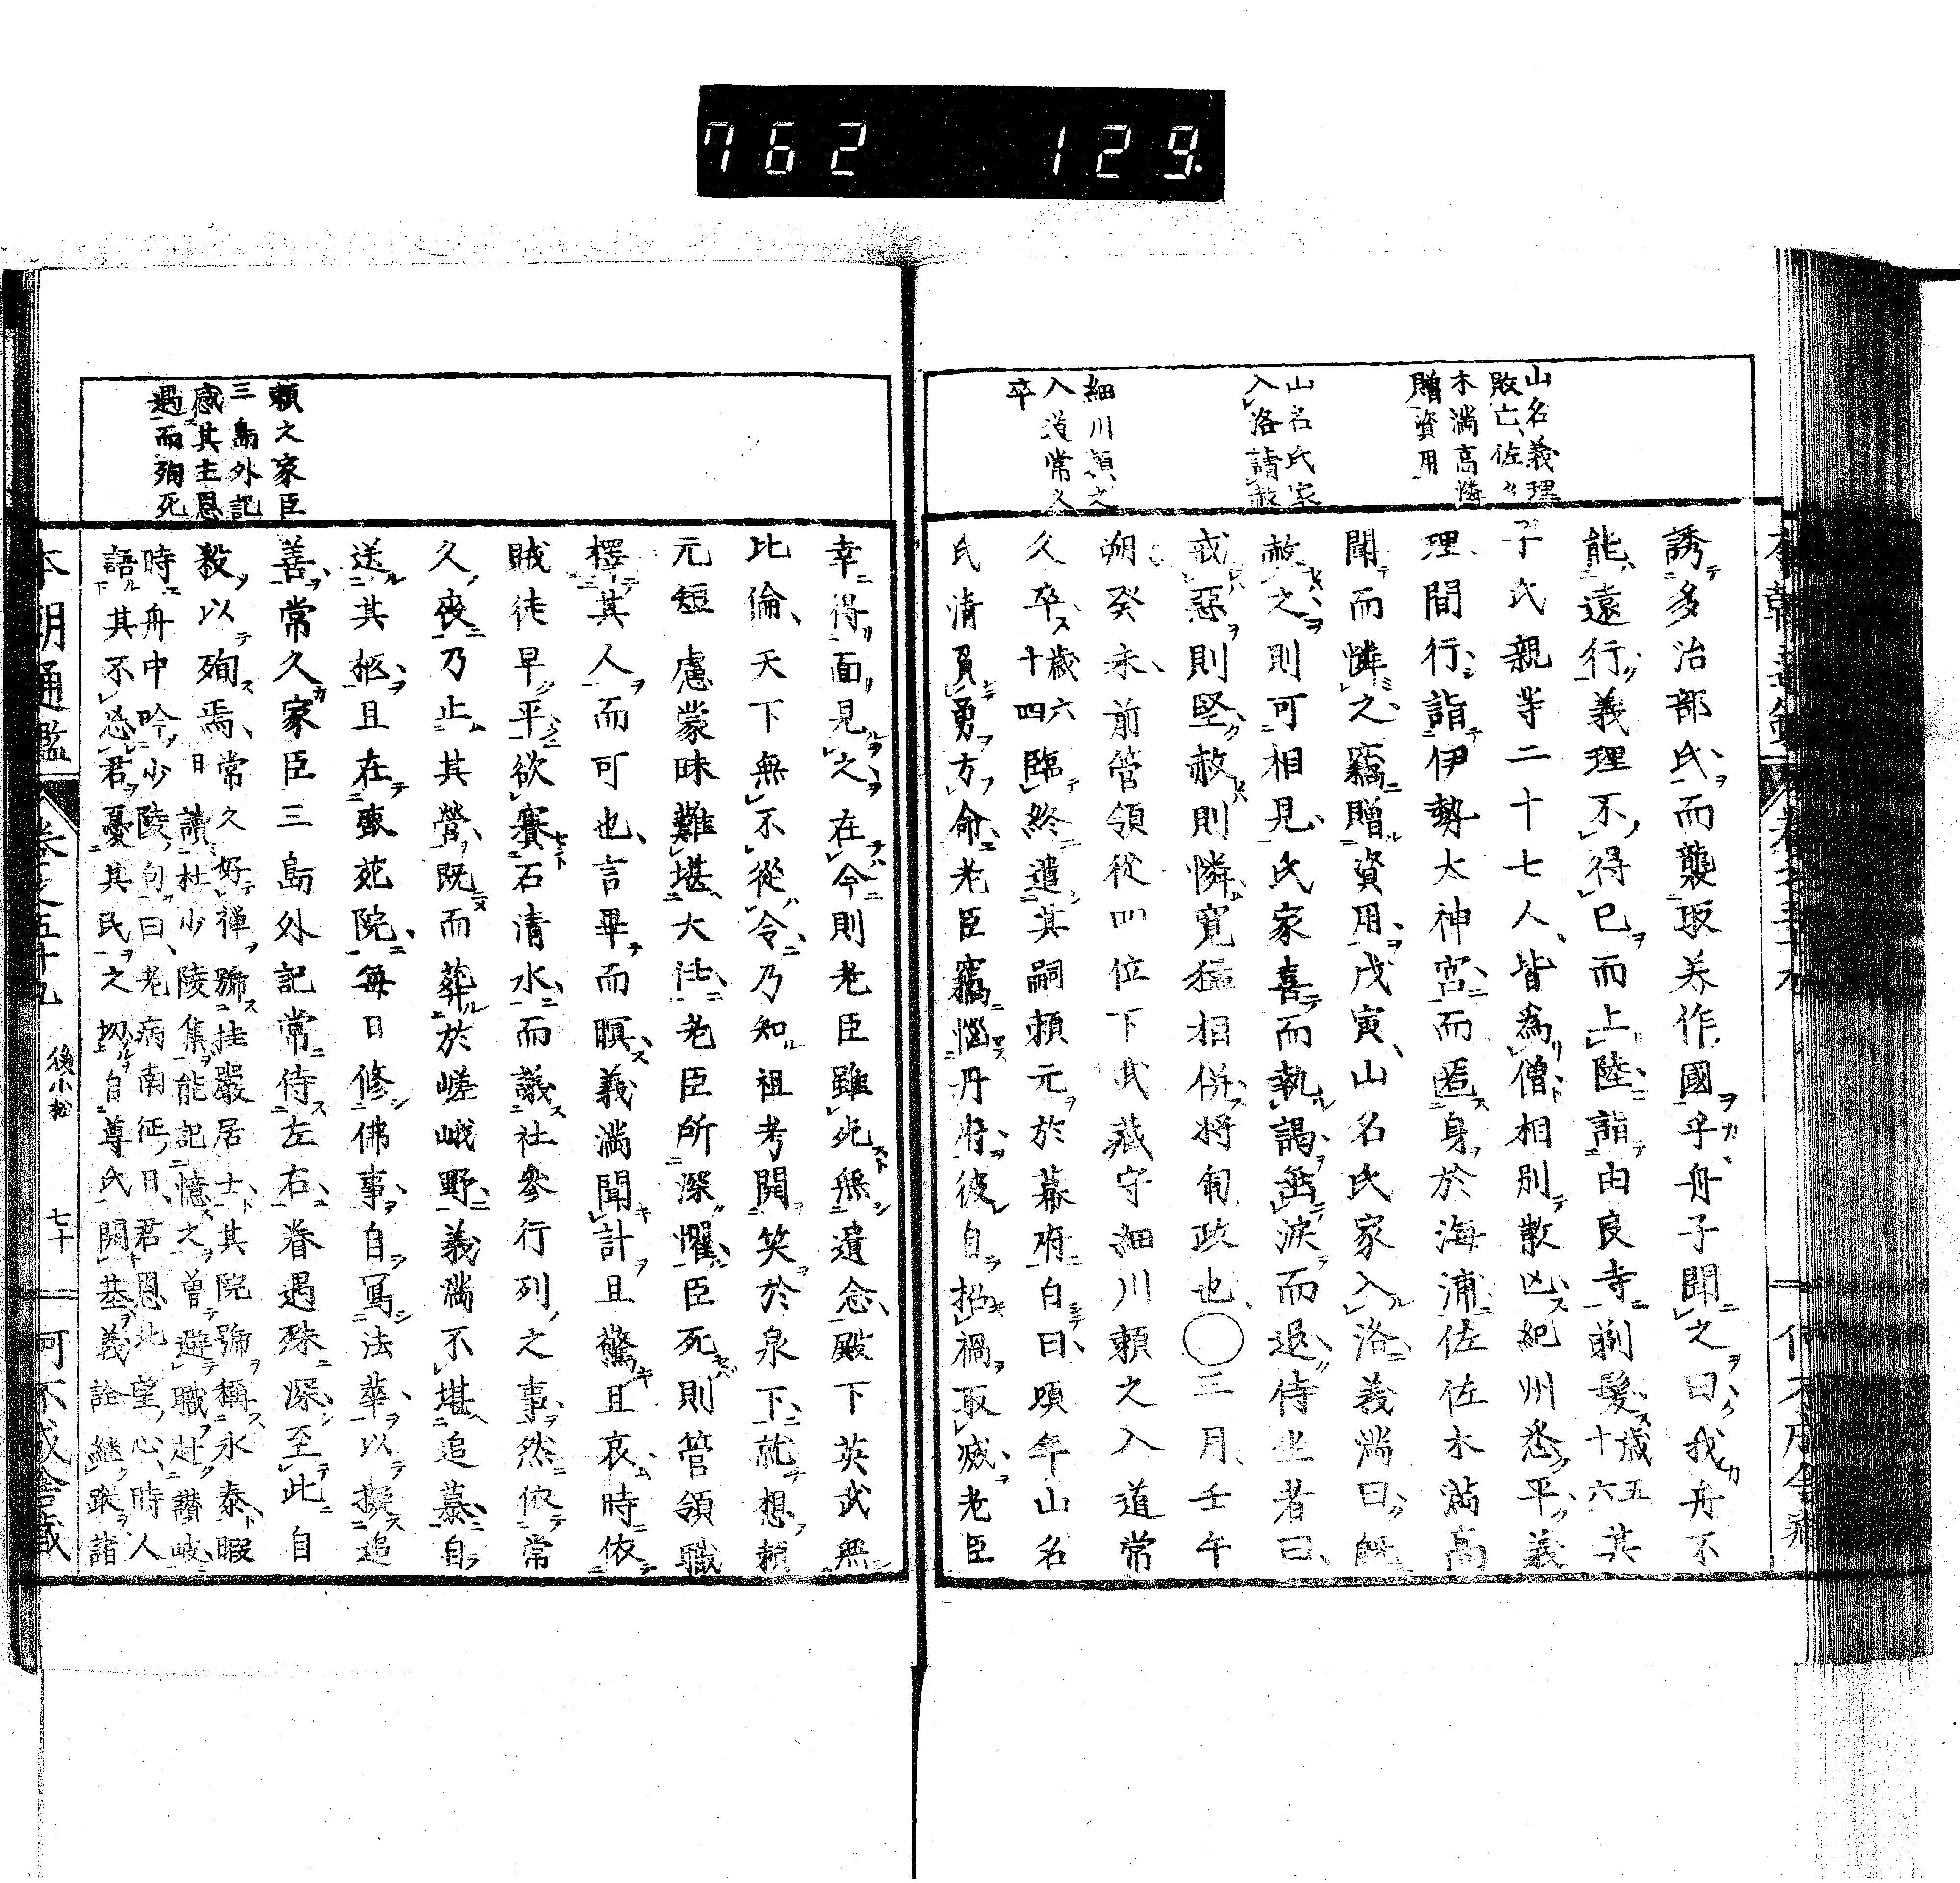 762 129.
山名義理
敗亡、佐々
木満高憐
贈資用
山名氏家
入洛請赦
細川頼之
入道常久
卒
誘多治部氏而襲取美作國乎舟子聞之曰我舟不
能遠行義理不得已而上陸詣由良寺剃髮歳五十六其
子氏親等二十七人皆為僧相別散亡紀州悉平義
理間行詣伊勢大神宮而匿身於海浦佐佐木満高
聞而憐之竊贈資用戊寅山名氏家入洛義満曰既
赦之則可相見氏家喜而執謁垂淚而退侍坐者曰
戒惡則堅赦則憐寛猛相併將旬政也○三月壬午
朔癸未前管領從四位下武藏守細川頼之入道常
久卒歳六十四臨終遣其嗣頼元於幕府白曰頃年山名
氏清負勇方命老臣竊惱丹府彼自招禍取滅老臣
頼之家臣
三島外記
感其主恩
遇而殉死
幸得面見之在今則老臣雖死無遺念殿下英武無
比倫天下無不從令乃知祖考開笑於泉下就想頼
元短慮蒙昧難堪大任老臣所深懼臣死則管領職
擇其人而可也言畢而瞑義満聞計且驚且哀時依
賊徒早平欲賽石清水而議社參行列之事然依常
久喪乃止其營既而葬於嵯峨野義満不堪追慕自
送其柩且在藥苑院每日修佛事自寫法華以擬追
善常久家臣三島外記常侍左右眷遇殊深至此自
殺以殉焉常久好禅號桂巖居士其院號稱永泰暇
日讀杜少陵集能記憶之曽避職赴讃岐
時舟中吟少陵句曰老病南征日君恩北望心時人
語其不忘君憂其民之切自尊氏開基義詮継蹤諸
本朝通鑑 卷之五十九 後小松 七十